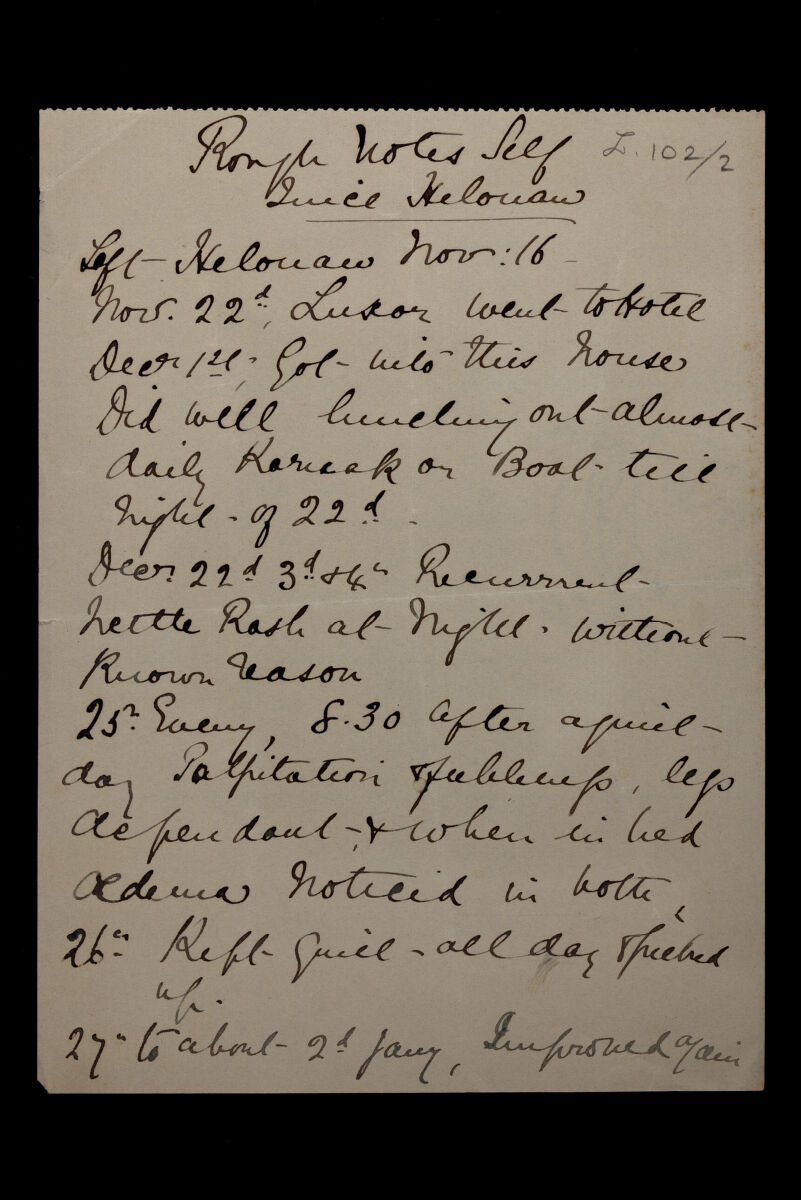 Rough Notes Self L.102/2
Since Helouan
Left Helouan Nov: 16
Nov. 22d, Luxor went to Hotel
Decr 1st. Got into this house
Did well lunching out almost
daily Karnak or Boat till
night of 22d.
Decr. 22d 3d & 4th Recurrent
Nettle Rash at Night. without
Known reason
25th Eveng, 8.30 after a quiet
day Palpitation & feebleness, legs
dependant, & when in bed
Œdema Noticed in both,
26th Kept Quiet all day & picked
up.
27th to about 2d Jany, Improved again